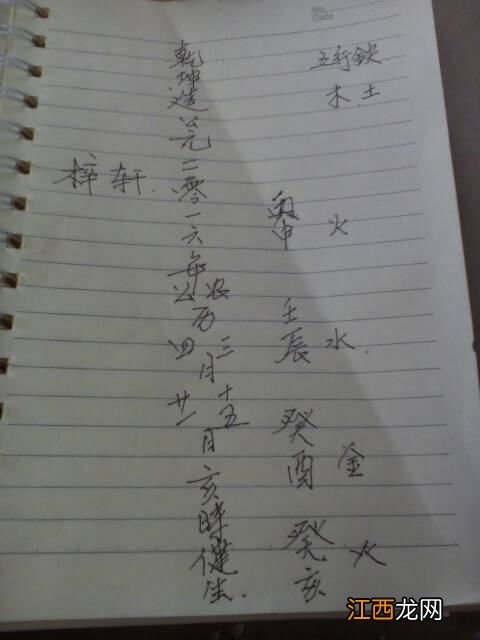 No.
Date
五行缺
木.土
丙申 火
壬辰 水.
癸酉 金
癸亥 火
乾坤造公元二零一六年
公农
历
四三
月
廿一十五
日亥時健生.
梓轩.
江西龙网
JXCN.CN